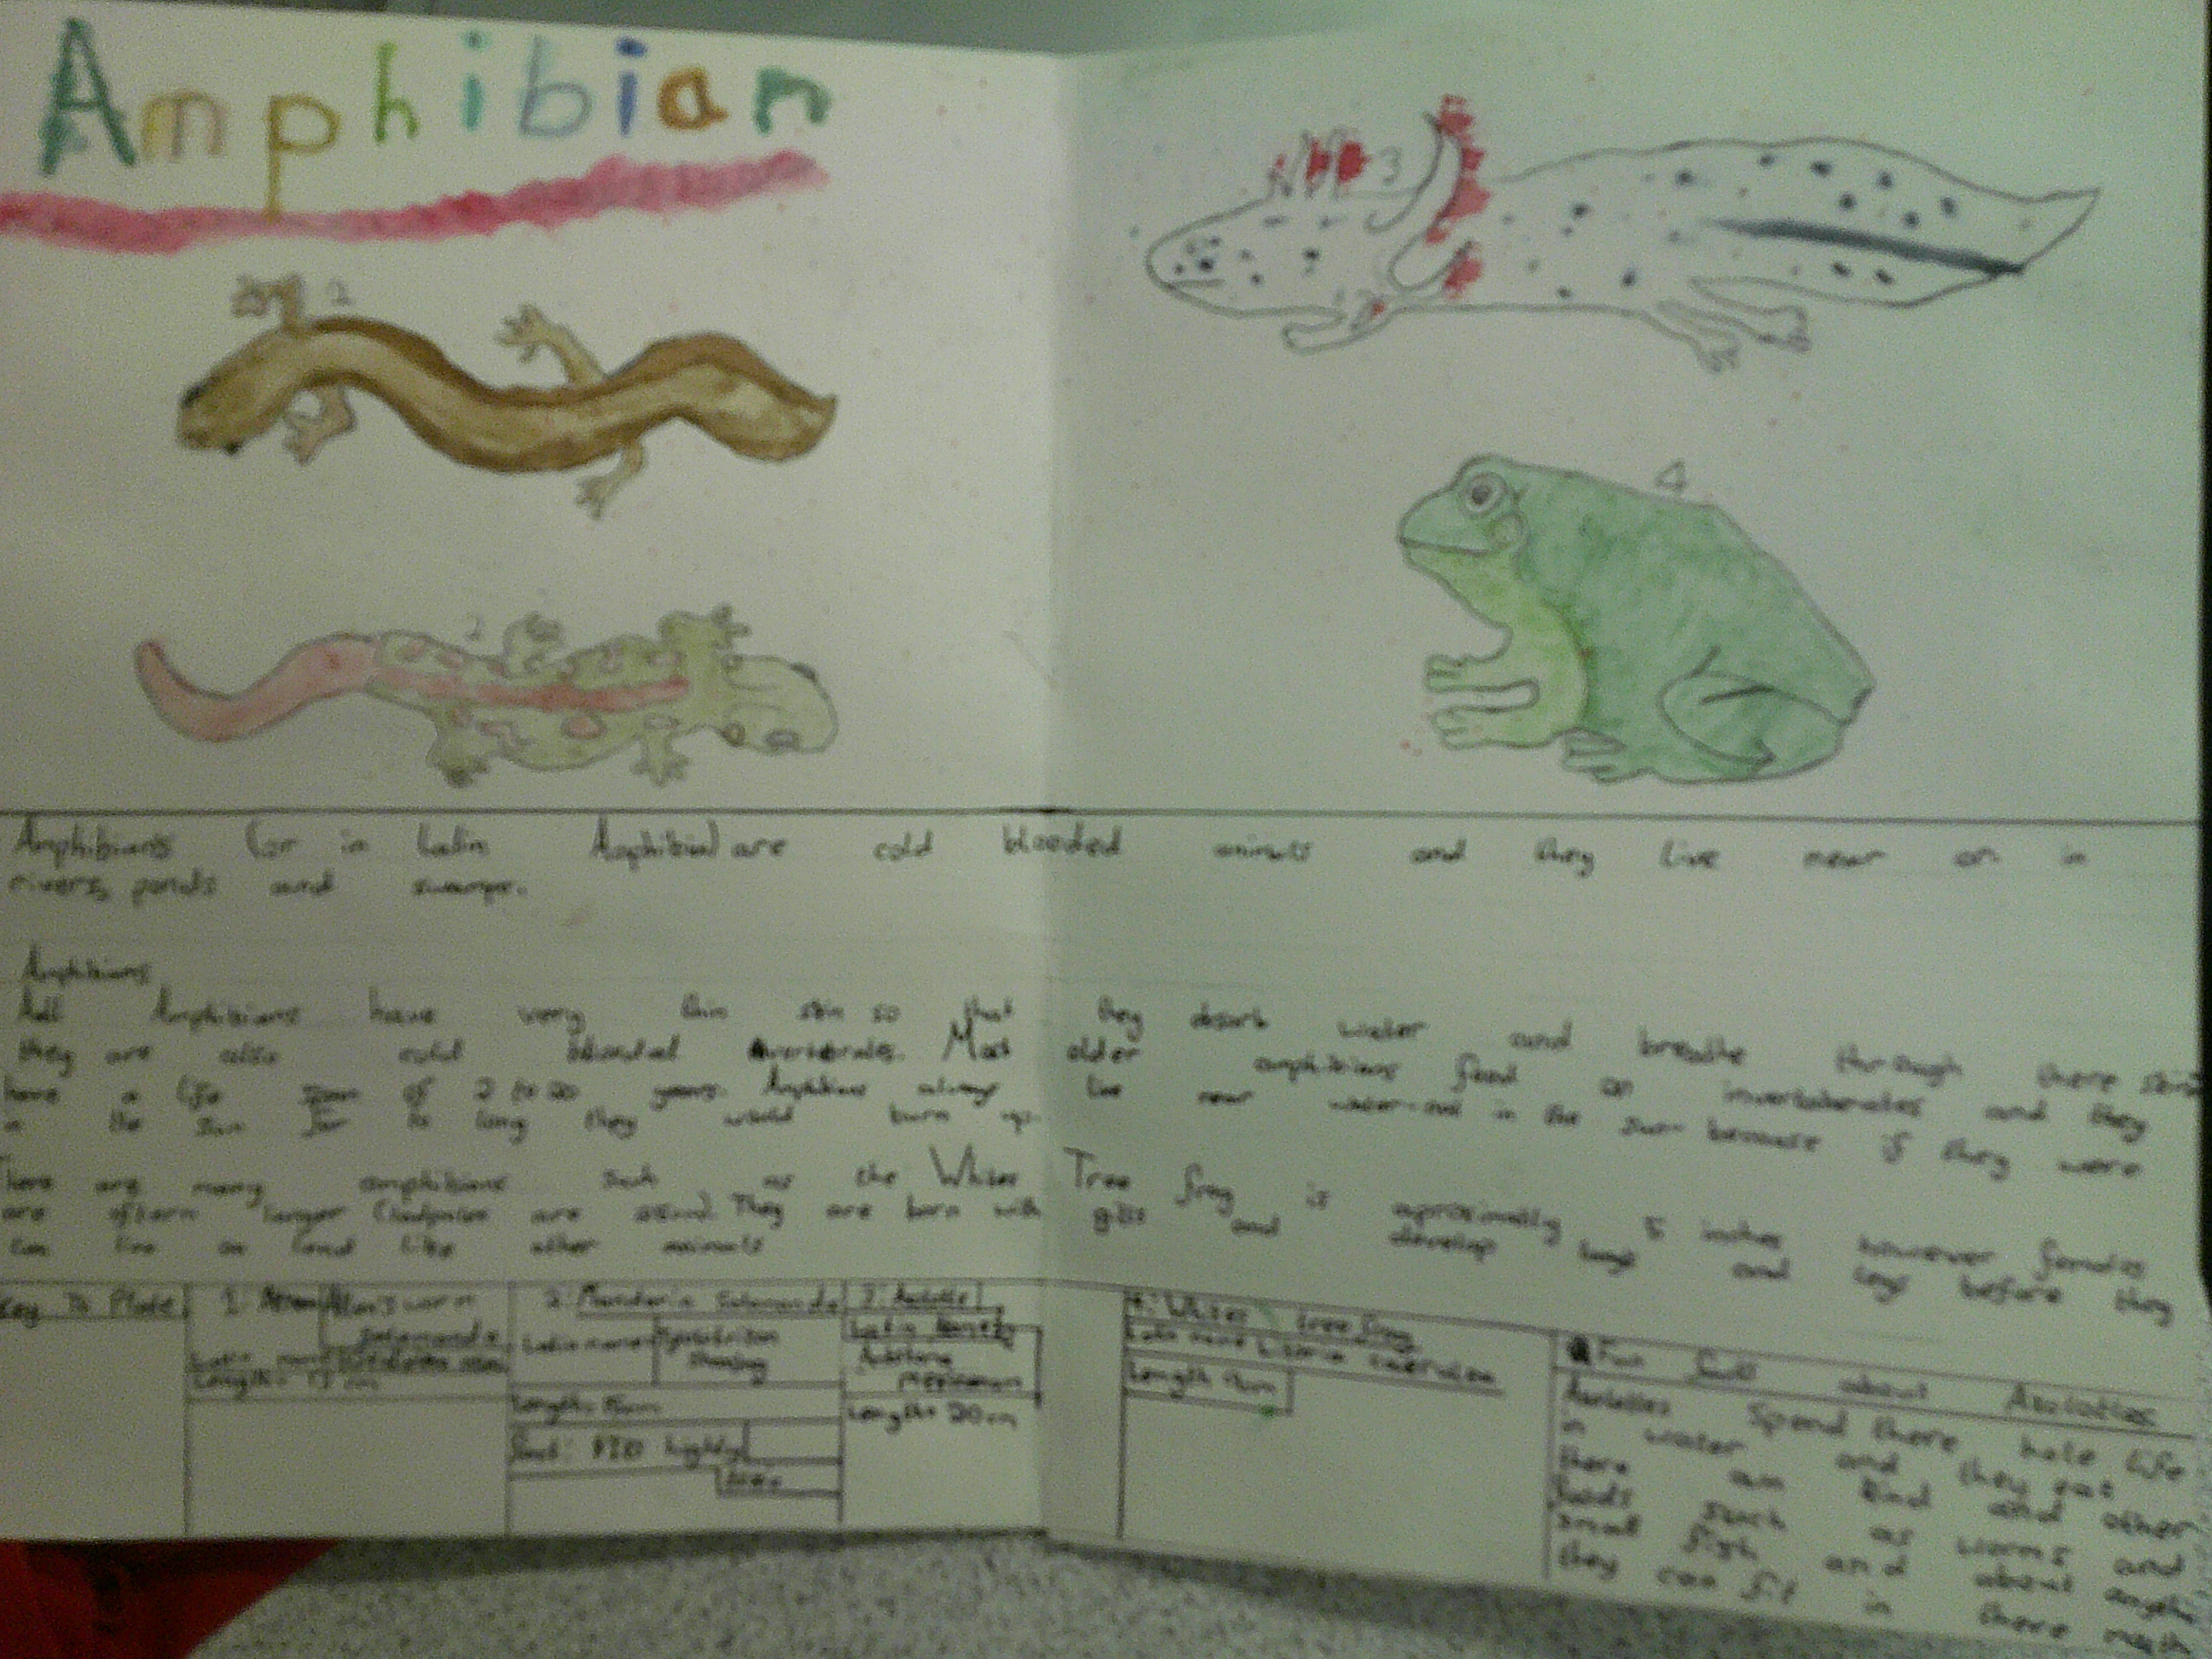 Amphibian
2
3
4
2
Amphibians (or in Latin Amphibia) are cold blooded animals and they live near or in
rivers, ponds and swamps.
Amphibians
All Amphibians have very thin skin so that they absorb water and breathe through there skin
they are also cold blooded vertebrates. Most older amphibians feed on invertebrates and they
have a life span of 2 to 20 years. Amphibians always live near water-not in the sun because if they were
in the sun for to long they would burn up.
There are many amphibians such as the Whites Tree frog is aproximatly 5 inches however females
are oftern larger They are born with gills and develop lungs and legs before they
can live on land like other animals
Key To Plate
1:
salamander
Latin name
Length: 13 cm
2: Mandarin Salamander
Latin name
Length: 15cm
highly
3:
Latin name
mexicanum
Length: 20cm
4: Whites tree frog
Latin name Litoria caerulea
Length 9cm
Fun facts about Axolotles
Axolotles spend there hole life
in water and they eat
there own kind and other
foods such as worms and
small fish and about anything
they can fit in there mouth